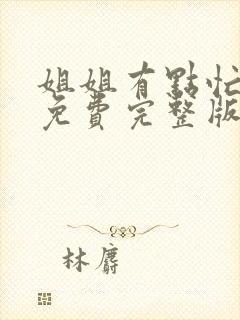 姐姐有點忙
免費完整版
林麝